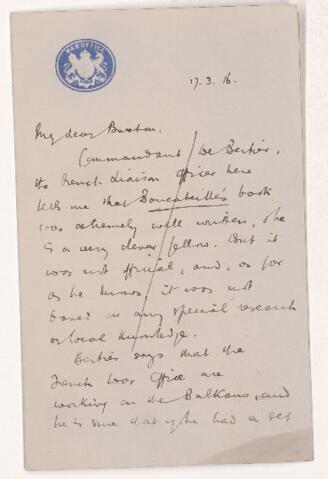 WAR OFFICE
17.3.16.
My dear Buxton.
Commandant De Bertier,
the French Liaison Officer here
tells me that Boucabeille's book
was extremely well written, & he
is a very clever fellow. But it
was not official, and, as far
as he knows, it was not
based on any special research
or local knowledge.
Bertier says that the
French War Office are
working on the Balkans, and
he is sure that if he had a set